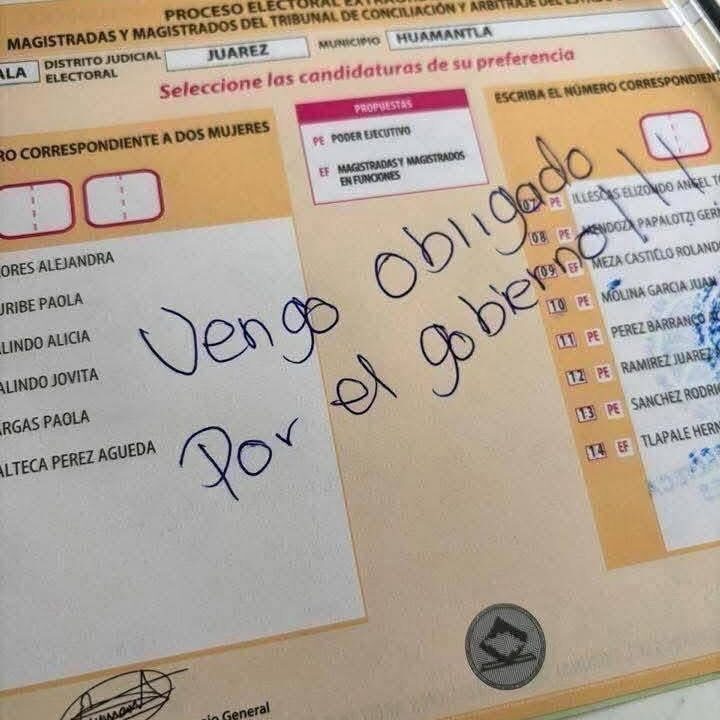 PROCESO ELECTORAL
MAGISTRADAS Y MAGISTRADOS DEL TRIBUNAL DE CONCILIACIÓN Y ARBITRAJE DEL
ALA DISTRITO JUDICIAL ELECTORAL JUAREZ MUNICIPIO HUAMANTLA
Seleccione las candidaturas de su preferencia
RO CORRESPONDIENTE A DOS MUJERES
ORES ALEJANDRA
URIBE PAOLA
LINDO ALICIA
ALINDO JOVITA
ARGAS PAOLA
ALTECA PEREZ AGUEDA
PROPUESTAS
PE PODER EJECUTIVO
EF MAGISTRADAS Y MAGISTRADOS
EN FUNCIONES
ESCRIBA EL NÚMERO CORRESPONDIENT
07 PE ILLESCAS ELIZONDO ANGEL
08 PE MENDOZA PAPALOTZI
09 EF MEZA CASTILLO ROLAND
10 PE MOLINA GARCIA JUAN
11 PE PEREZ BARRANCO
12 PE RAMIREZ JUAREZ
13 PE SANCHEZ RODRI
14 EF TLAPALE HERN
Vengo obligado
Por el gobierno!!!
General